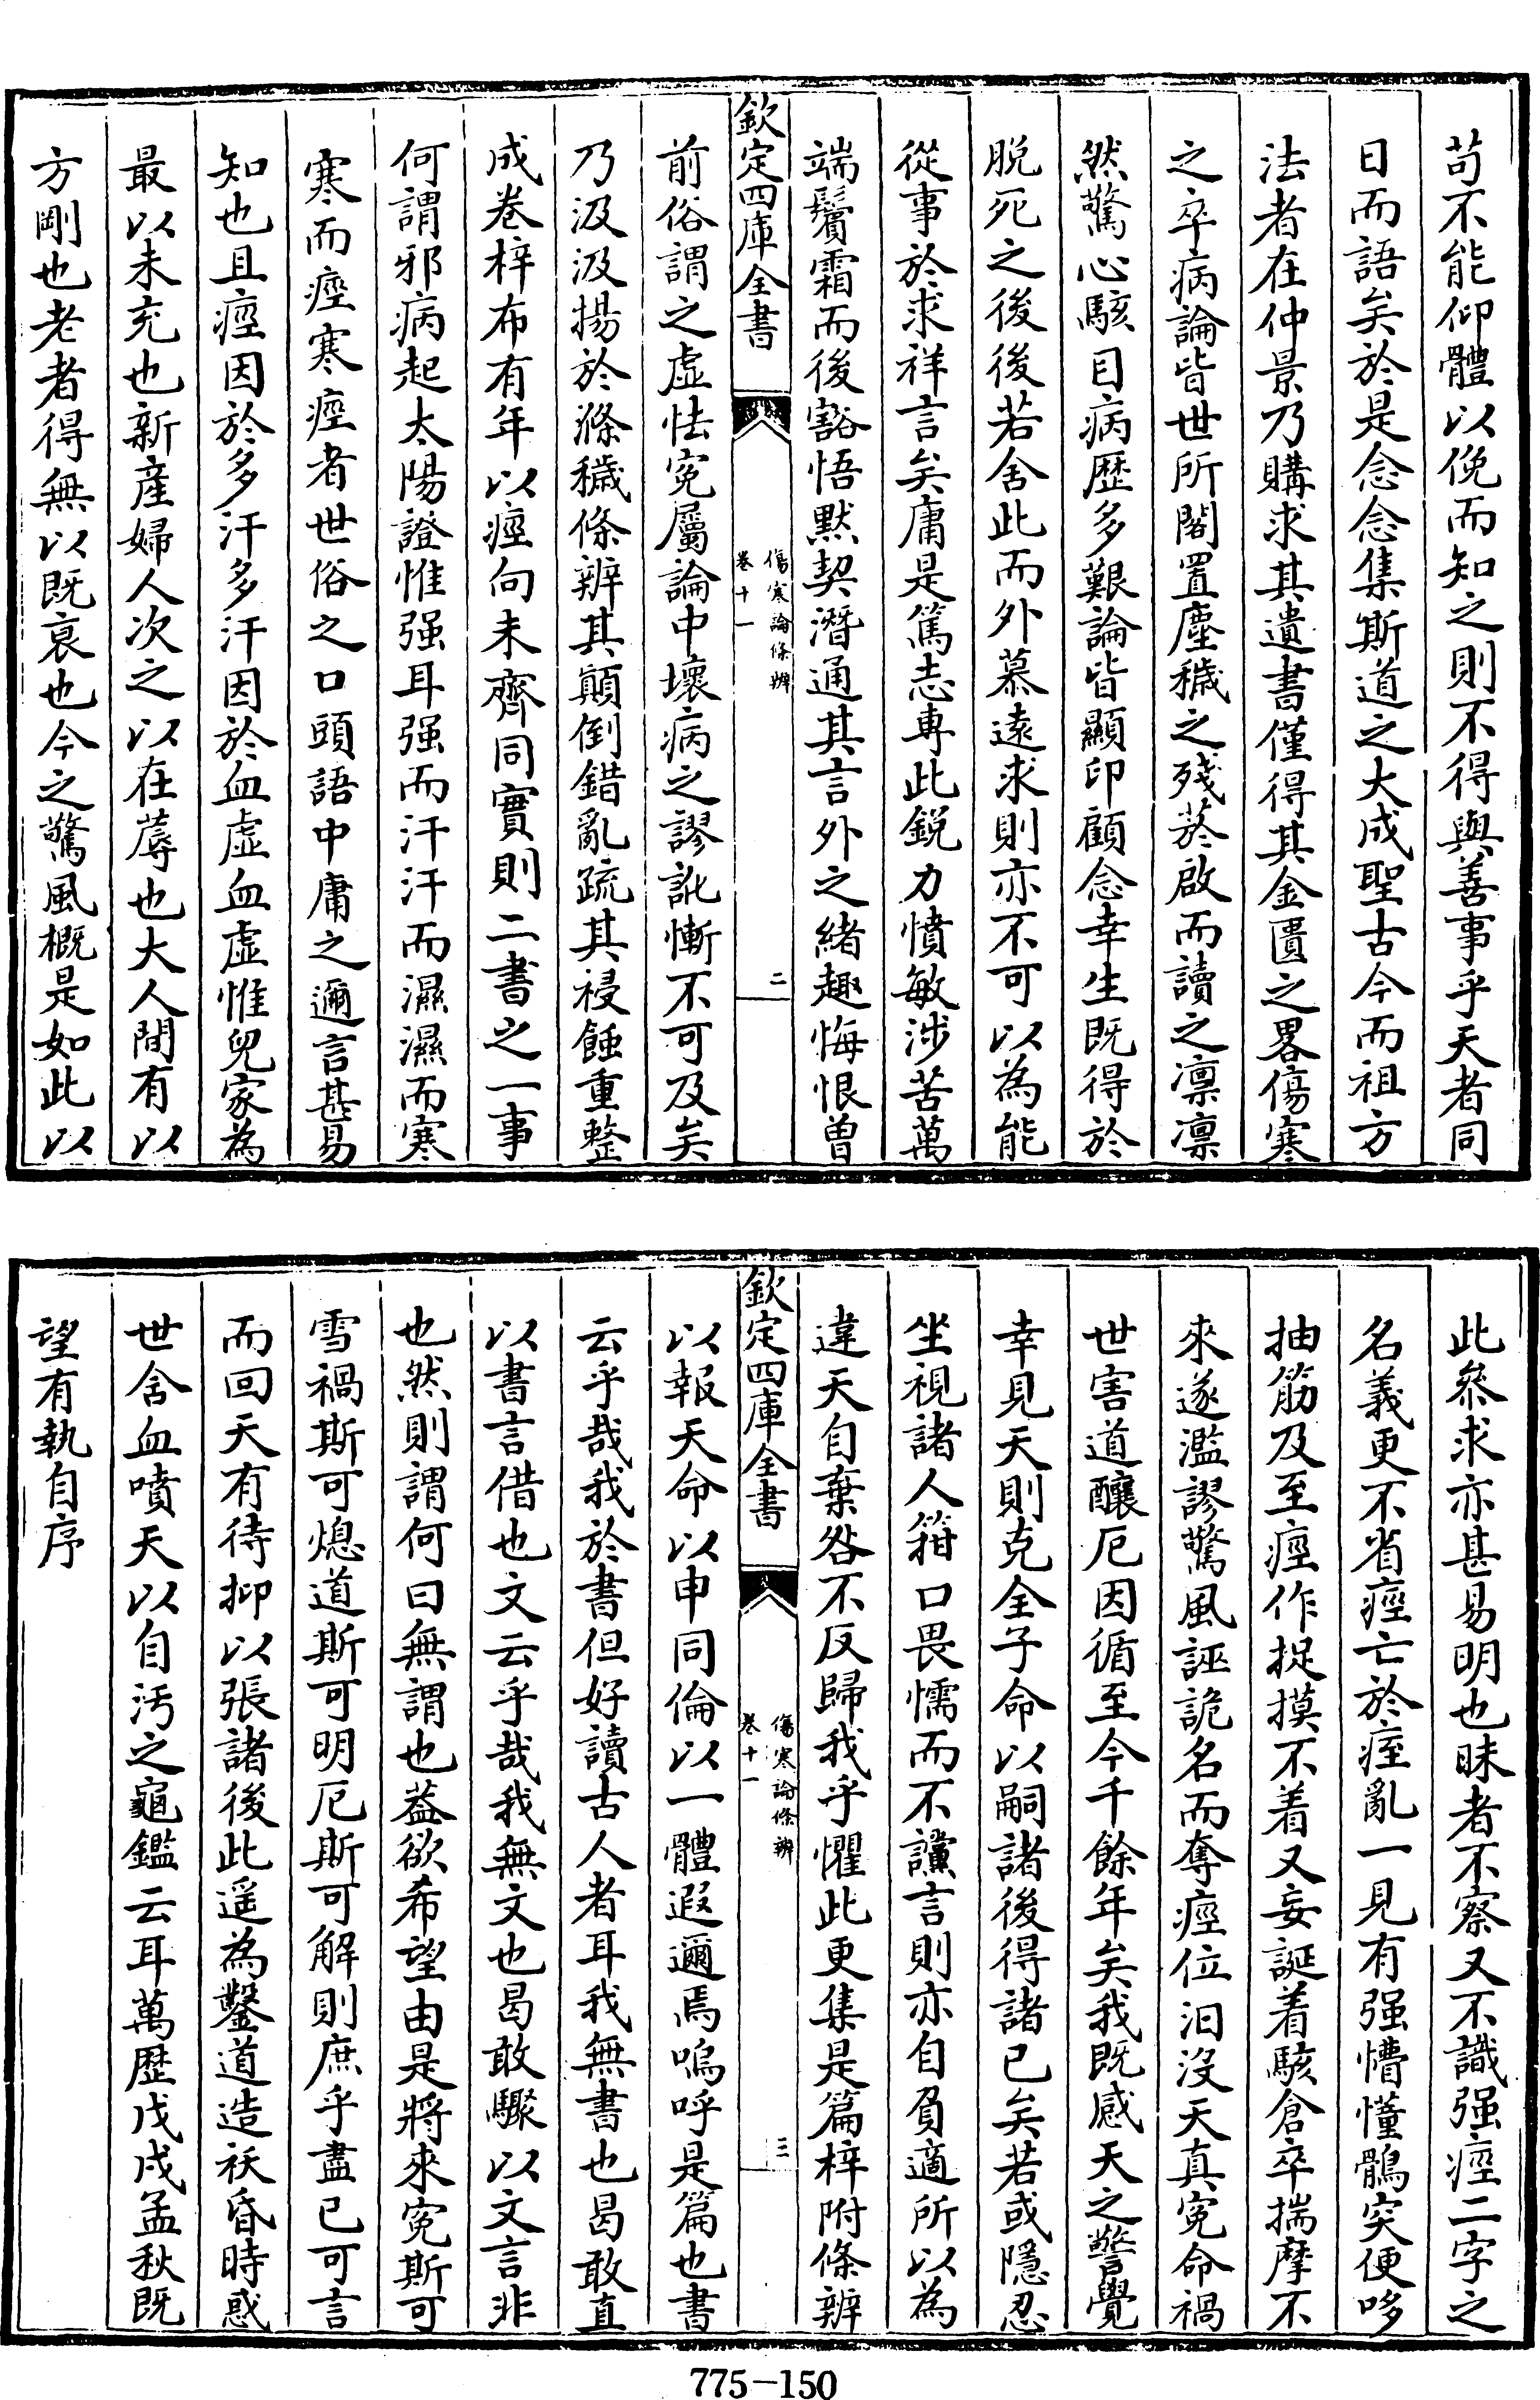 苟不能仰體以俛而知之則不得與善事乎天者同
日而語矣於是念念集斯道之大成聖古今而祖方
法者在仲景乃購求其遺書僅得其金匱之畧傷寒
之卒病論皆世所閣置塵穢之殘菸啟而讀之凛凛
然驚心駭目病歴多艱論皆顯印顧念幸生既得於
脱死之後後若舍此而外慕遠求則亦不可以為能
從事於求祥言矣庸是篤志専此鋭力憤敏涉苦萬
端鬢霜而後豁悟默契潛通其言外之緒趣悔恨曽
欽定四庫全書
傷寒論條辨
卷十一
二
前俗謂之虛怯寃屬論中壞病之謬訛慚不可及矣
乃汲汲揚於滌穢條辨其顛倒錯亂疏其祲蝕重整
成卷梓布有年以痙向未齊同實則二書之一事
何謂邪病起太陽證惟强耳强而汗汗而濕濕而寒
寒而痙寒痙者世俗之口頭語中庸之邇言甚易
知也且痙因於多汗多汗因於血虛血虛惟兒家為
最以未充也新產婦人次之以在蓐也大人間有以
方剛也老者得無以既衰也今之驚風概是如此以
此叅求亦甚易明也昧者不察又不識强痙二字之
名義更不省痙亡於痓亂一見有强懵懂鶻突便哆
抽筋及至痙作捉摸不着又妄誕着駭倉卒揣摩不
來遂濫謬驚風誣詭名而奪痙位汩没天真寃命禍
世害道釀厄因循至今千餘年矣我既感天之警覺
幸見天則克全子命以嗣諸後得諸已矣若或隱忍
坐視諸人箝口畏懦而不讜言則亦自負適所以為
違天自棄咎不反歸我乎懼此更集是篇梓附條辨
欽定四庫全書
傷寒論條辨
卷十一
三
以報天命以申同倫以一體遐邇焉嗚呼是篇也書
云乎哉我於書但好讀古人者耳我無書也曷敢直
以書言借也文云乎哉我無文也曷敢驟以文言非
也然則謂何曰無謂也葢欲希望由是將來寃斯可
雪禍斯可熄道斯可明厄斯可解則庶乎盡已可言
而回天有待抑以張諸後此遥為鑿道造祅昏時惑
世舍血噴天以自汚之龜鑑云耳萬歴戊戌孟秋既
望有執自序
775-150